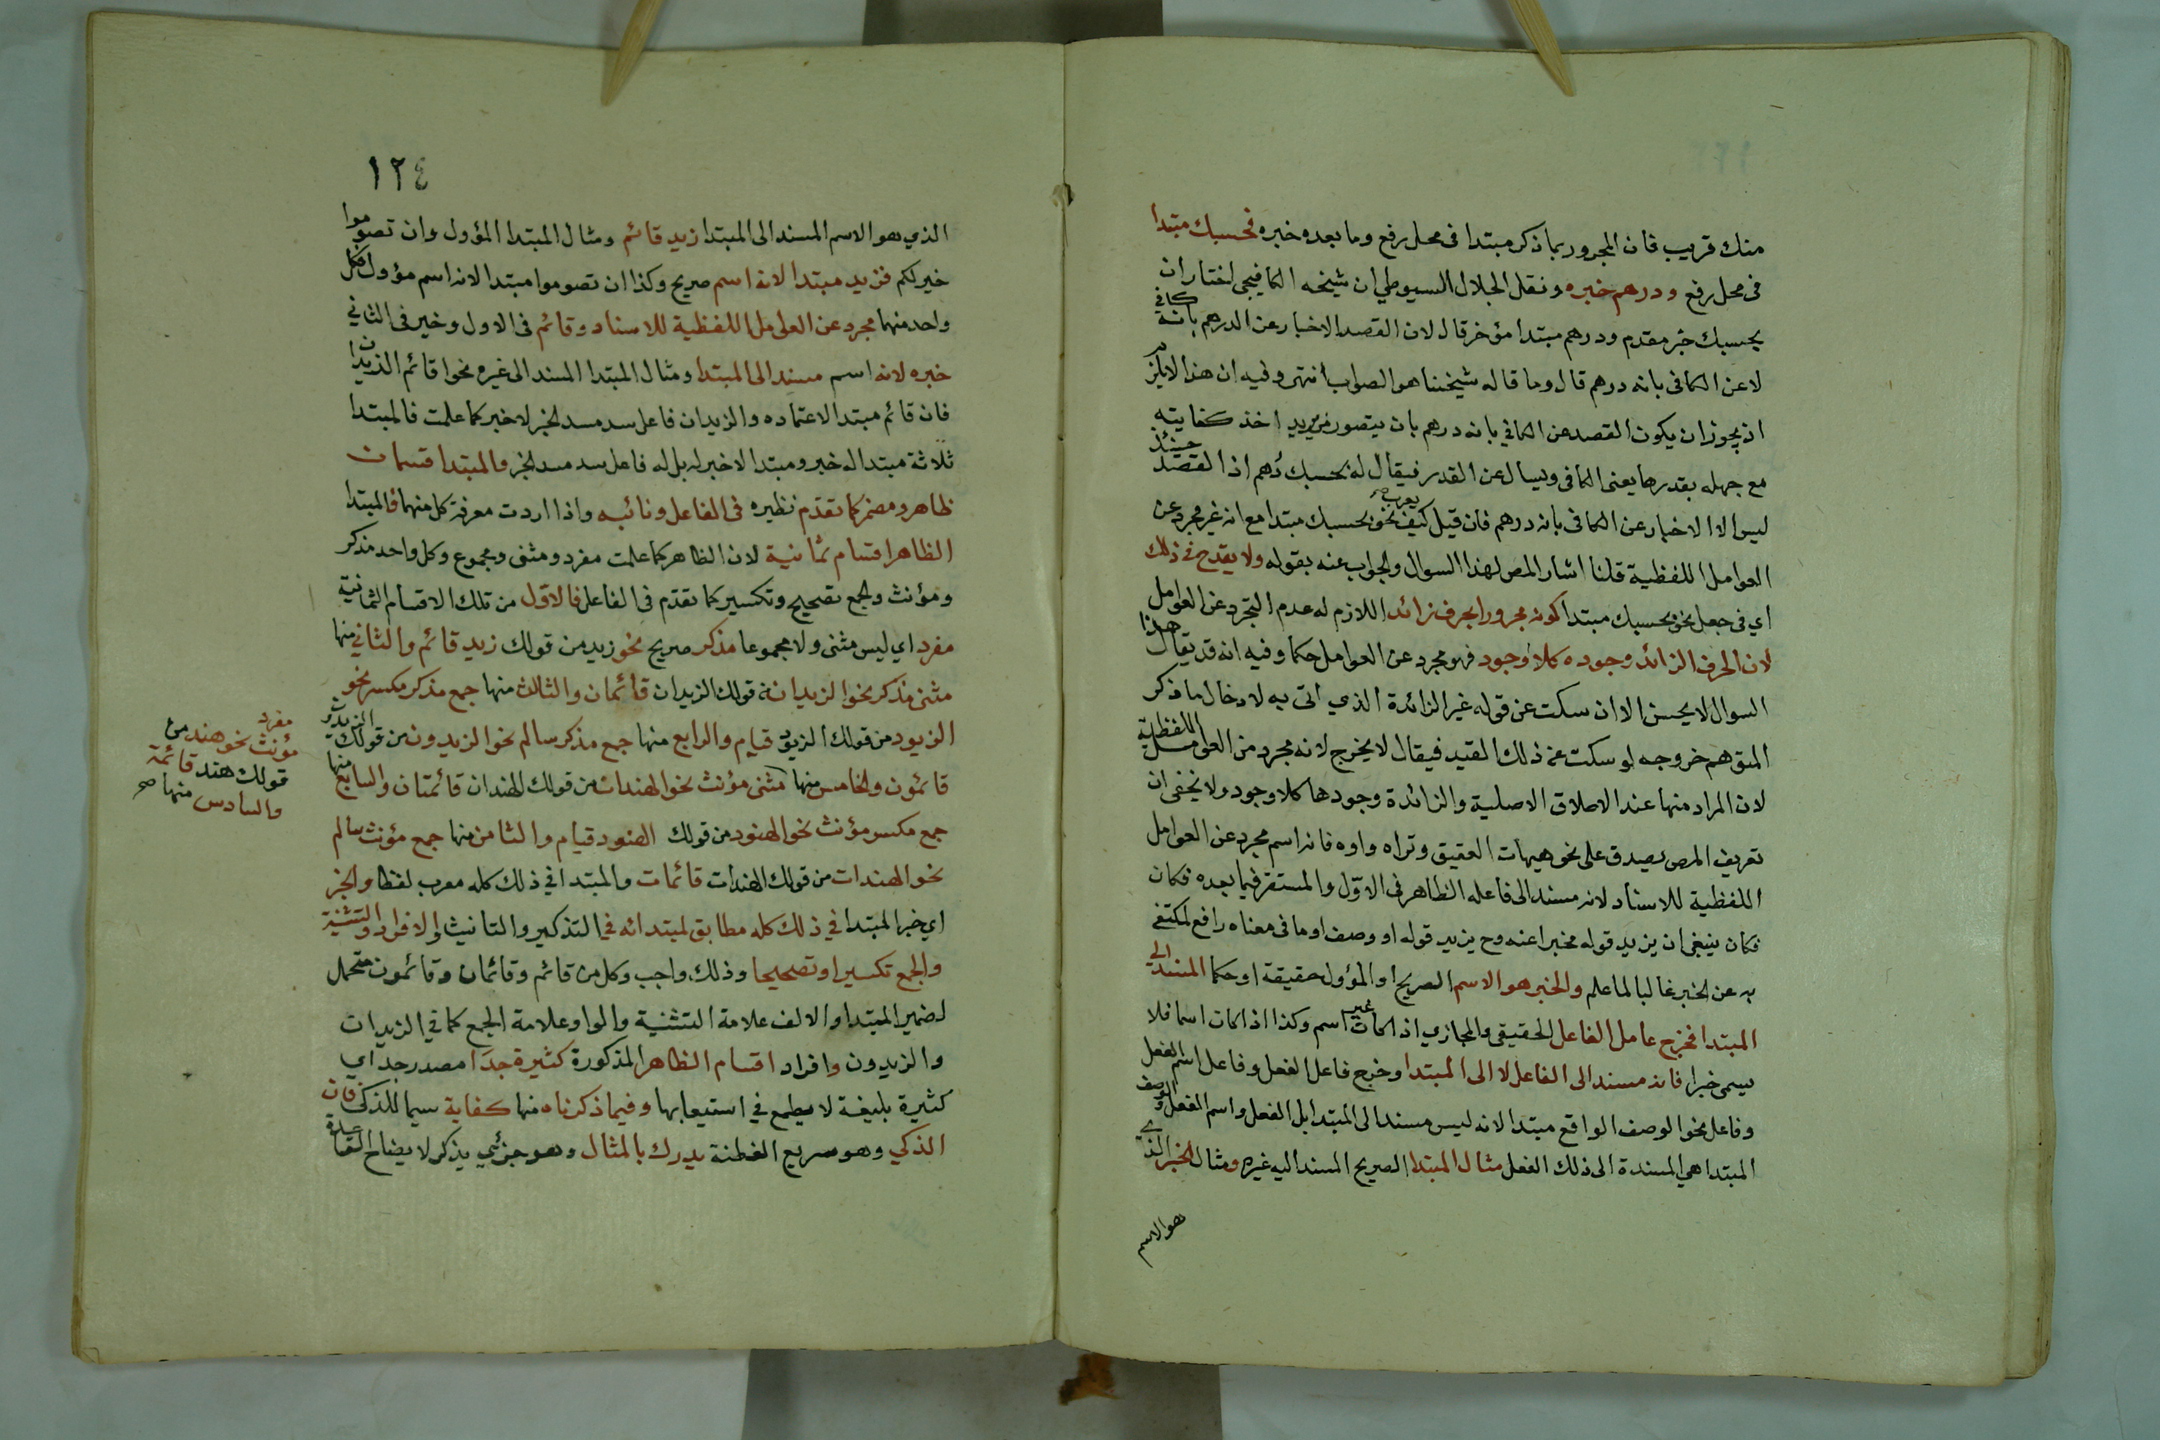 منك قريب فان المجرور بما ذكر مبتدا فى محل رفع وما بعده خبره فحسبك مبتدا
فى محل رفع ودرهم خبره ونقل الجلال السيوطي ان شيخه الكافيجى اختار ان
بحسبك خبر مقدم ودرهم مبتدا مؤخر قال لان القصد الاخبار عن الدرهم بانه كافي
لا عن الكافى بانه درهم قال وما قاله شيخنا هو الصواب انتهى وفيه ان هذا لا يلزم
اذ يجوز ان يكون القصد عن الكافي بانه درهم بان يتصور من يريد اخذ كفايته
مع جهله بقدرها يعنى الكافى ويسال عن القدر فيقال له بحسبك درهم اذ القصد حينئذ
ليس الا الاخبار عن الكافى بانه درهم فان قيل كيف يعرب نحو بحسبك مبتدا مع انه غير مجرد عن
العوامل اللفظية قلنا اشار المص لهذا السوال والجواب عنه بقوله ولا يقدح فى ذلك
اي فى جعل نحو بحسبك مبتدا كونه مجرورا بحرف زائد اللازم له عدم التجرد عن العوامل
لان الحرف الزائد وجوده كلا وجود فهو مجرد عن العوامل حكما وفيه انه قد يقال هذا
السوال لا يحسن الا ان سكت عن قوله غير الزائدة الذي اتى به لادخال ما ذكر
المتوهم خروجه لو سكت عن ذلك القيد فيقال لا يخرج لانه مجرد من العوامل اللفظية
لان المراد منها عند الاطلاق الاصلية والزائدة وجودها كلا وجود ولا يخفى ان
تعريف المص يصدق على نحو هيهات العقيق وتراه واوه فانه اسم مجرد عن العوامل
اللفظية للاسناد لانه مسند الى فاعله الظاهر فى الاوّل والمستتر فيما بعده فكان
فكان ينبغى ان يزيد قوله مخبرا عنه وح يزيد قوله او وصف او ما فى معناه رافع لمكتفى
به عن الخبر غالبا لما علم والخبر هو الاسم الصريح او المؤول حقيقة او حكما المسند الى
المبتدا فخرج عامل الفاعل الحقيقى والمجازي اذا كان غير اسم وكذا اذا كان اسما فلا
يسمى خبرا فانه مسند الى الفاعل لا الى المبتدا وخرج فاعل الفعل وفاعل اسم الفعل
وفاعل نحو الوصف الواقع مبتدا لانه ليس مسندا الى المبتدا بل الفعل واسم الفعل والوصف
المبتدا هي المسندة الى ذلك الفعل مثال المبتدا الصريح المسند اليه غيره ومثال الخبر الذي
هو الاسم
١٢٤
الذي هو الاسم المسند الى المبتدا زيد قائم ومثال المبتدا المؤول وان تصوموا
خير لكم فزيد مبتدا لانه اسم صريح وكذا ان تصوموا مبتدا لانه اسم مؤول فكل
واحد منهما مجرد عن العوامل اللفظية للاسناد وقائم فى الاول وخير فى الثاني
خبره لانه اسم مسند الى المبتدا ومثال المبتدا المسند الى غيره نحو اقائم الزيدان
فان قائم مبتدا لاعتماده والزيدان فاعل سد مسد الخبر لا خبر كما علمت فالمبتدا
ثلاثة مبتدا له خبر ومبتدا لا خبر له بل له فاعل سد مسد الخبر والمبتدا قسمان
ظاهر ومضمر كما تقدّم نظيره فى الفاعل ونائبه واذا اردت معرفة كل منهما فالمبتدا
الظاهر اقسام ثمانية لان الظاهر كما علمت مفرد ومثنى ومجموع وكل واحد مذكر
ومؤنث والجمع تصحيح وتكسير كما تقدّم فى الفاعل فالاوّل من تلك الاقسام الثمانية
مفرد اي ليس مثنى ولا مجموعا مذكر صريح نحو زيد من قولك زيد قائم والثاني منها
مثنى مذكر نحو الزيدان من قولك الزيدان قائمان والثالث منها جمع مذكر مكسر نحو
الزيود من قولك الزيود قيام والرابع منها جمع مذكر سالم نحو الزيدون من قولك الزيدون
قائمون والخامس منها مثنى مؤنث نحو الهندان من قولك الهندان قائمتان والسابع منها
جمع مكسر مؤنث نحو الهنود من قولك الهنود قيام والثامن منها جمع مؤنث سالم
نحو الهندات من قولك الهندات قائمات والمبتدا في ذلك كله معرب لفظا والخبر
اي خبر المبتدا في ذلك كله مطابق لمبتدائه في التذكير والتانيث والافراد والتثنية
والجمع تكسيرا وتصحيحا وذلك واجب وكل من قائم وقائمان وقائمون متحمل
لضمير المبتدا والالف علامة التثنية والواو علامة الجمع كما في الزيدان
والزيدون وافراد اقسام الظاهر المذكورة كثيرة جدّا مصدر جد اي
كثيرة بليغة لا يطمع في استيعابها وفيما ذكرناه منها كفاية سيما للذكي فان
الذكي وهو سريع الفطنة يدرك بالمثال وهو جزئي يذكر لايضاح القاعدة
مفرد
مؤنث نحو هند من
قولك هند قائمة
والسادس منها صح